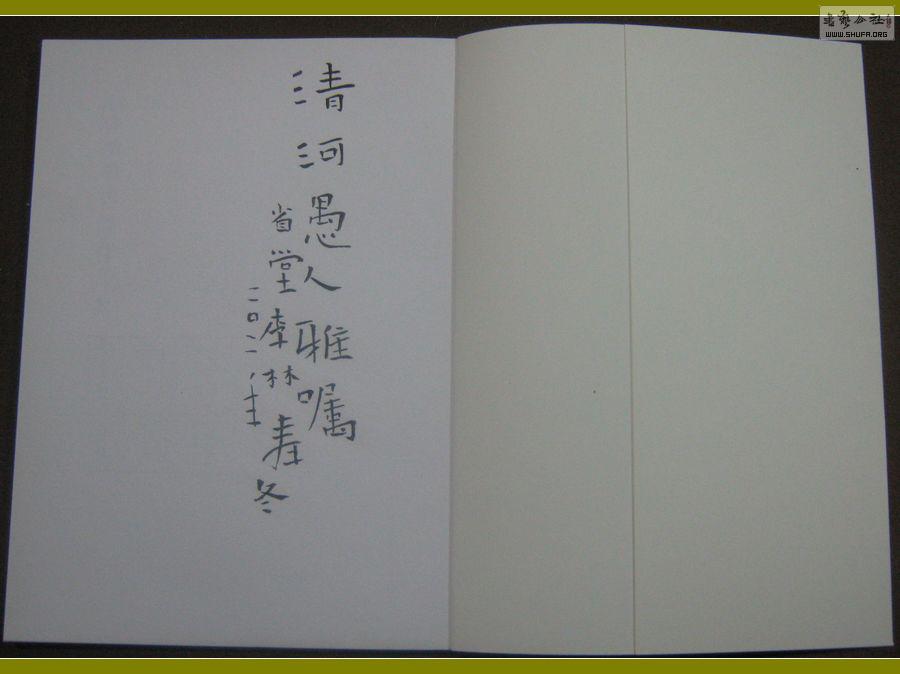 清河愚人雅嘱
省堂李林寿
二〇一一年冬
书艺公社
WWW.SHUFA.ORG